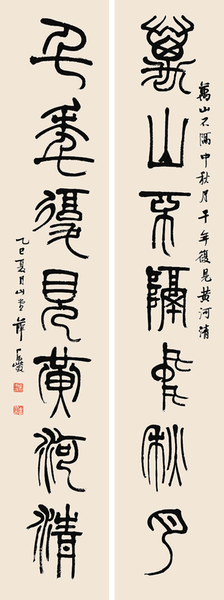 萬山不隔中秋月千年復見黃河清
萬山不隔中秋月
千年復見黃河清
乙巳夏月山